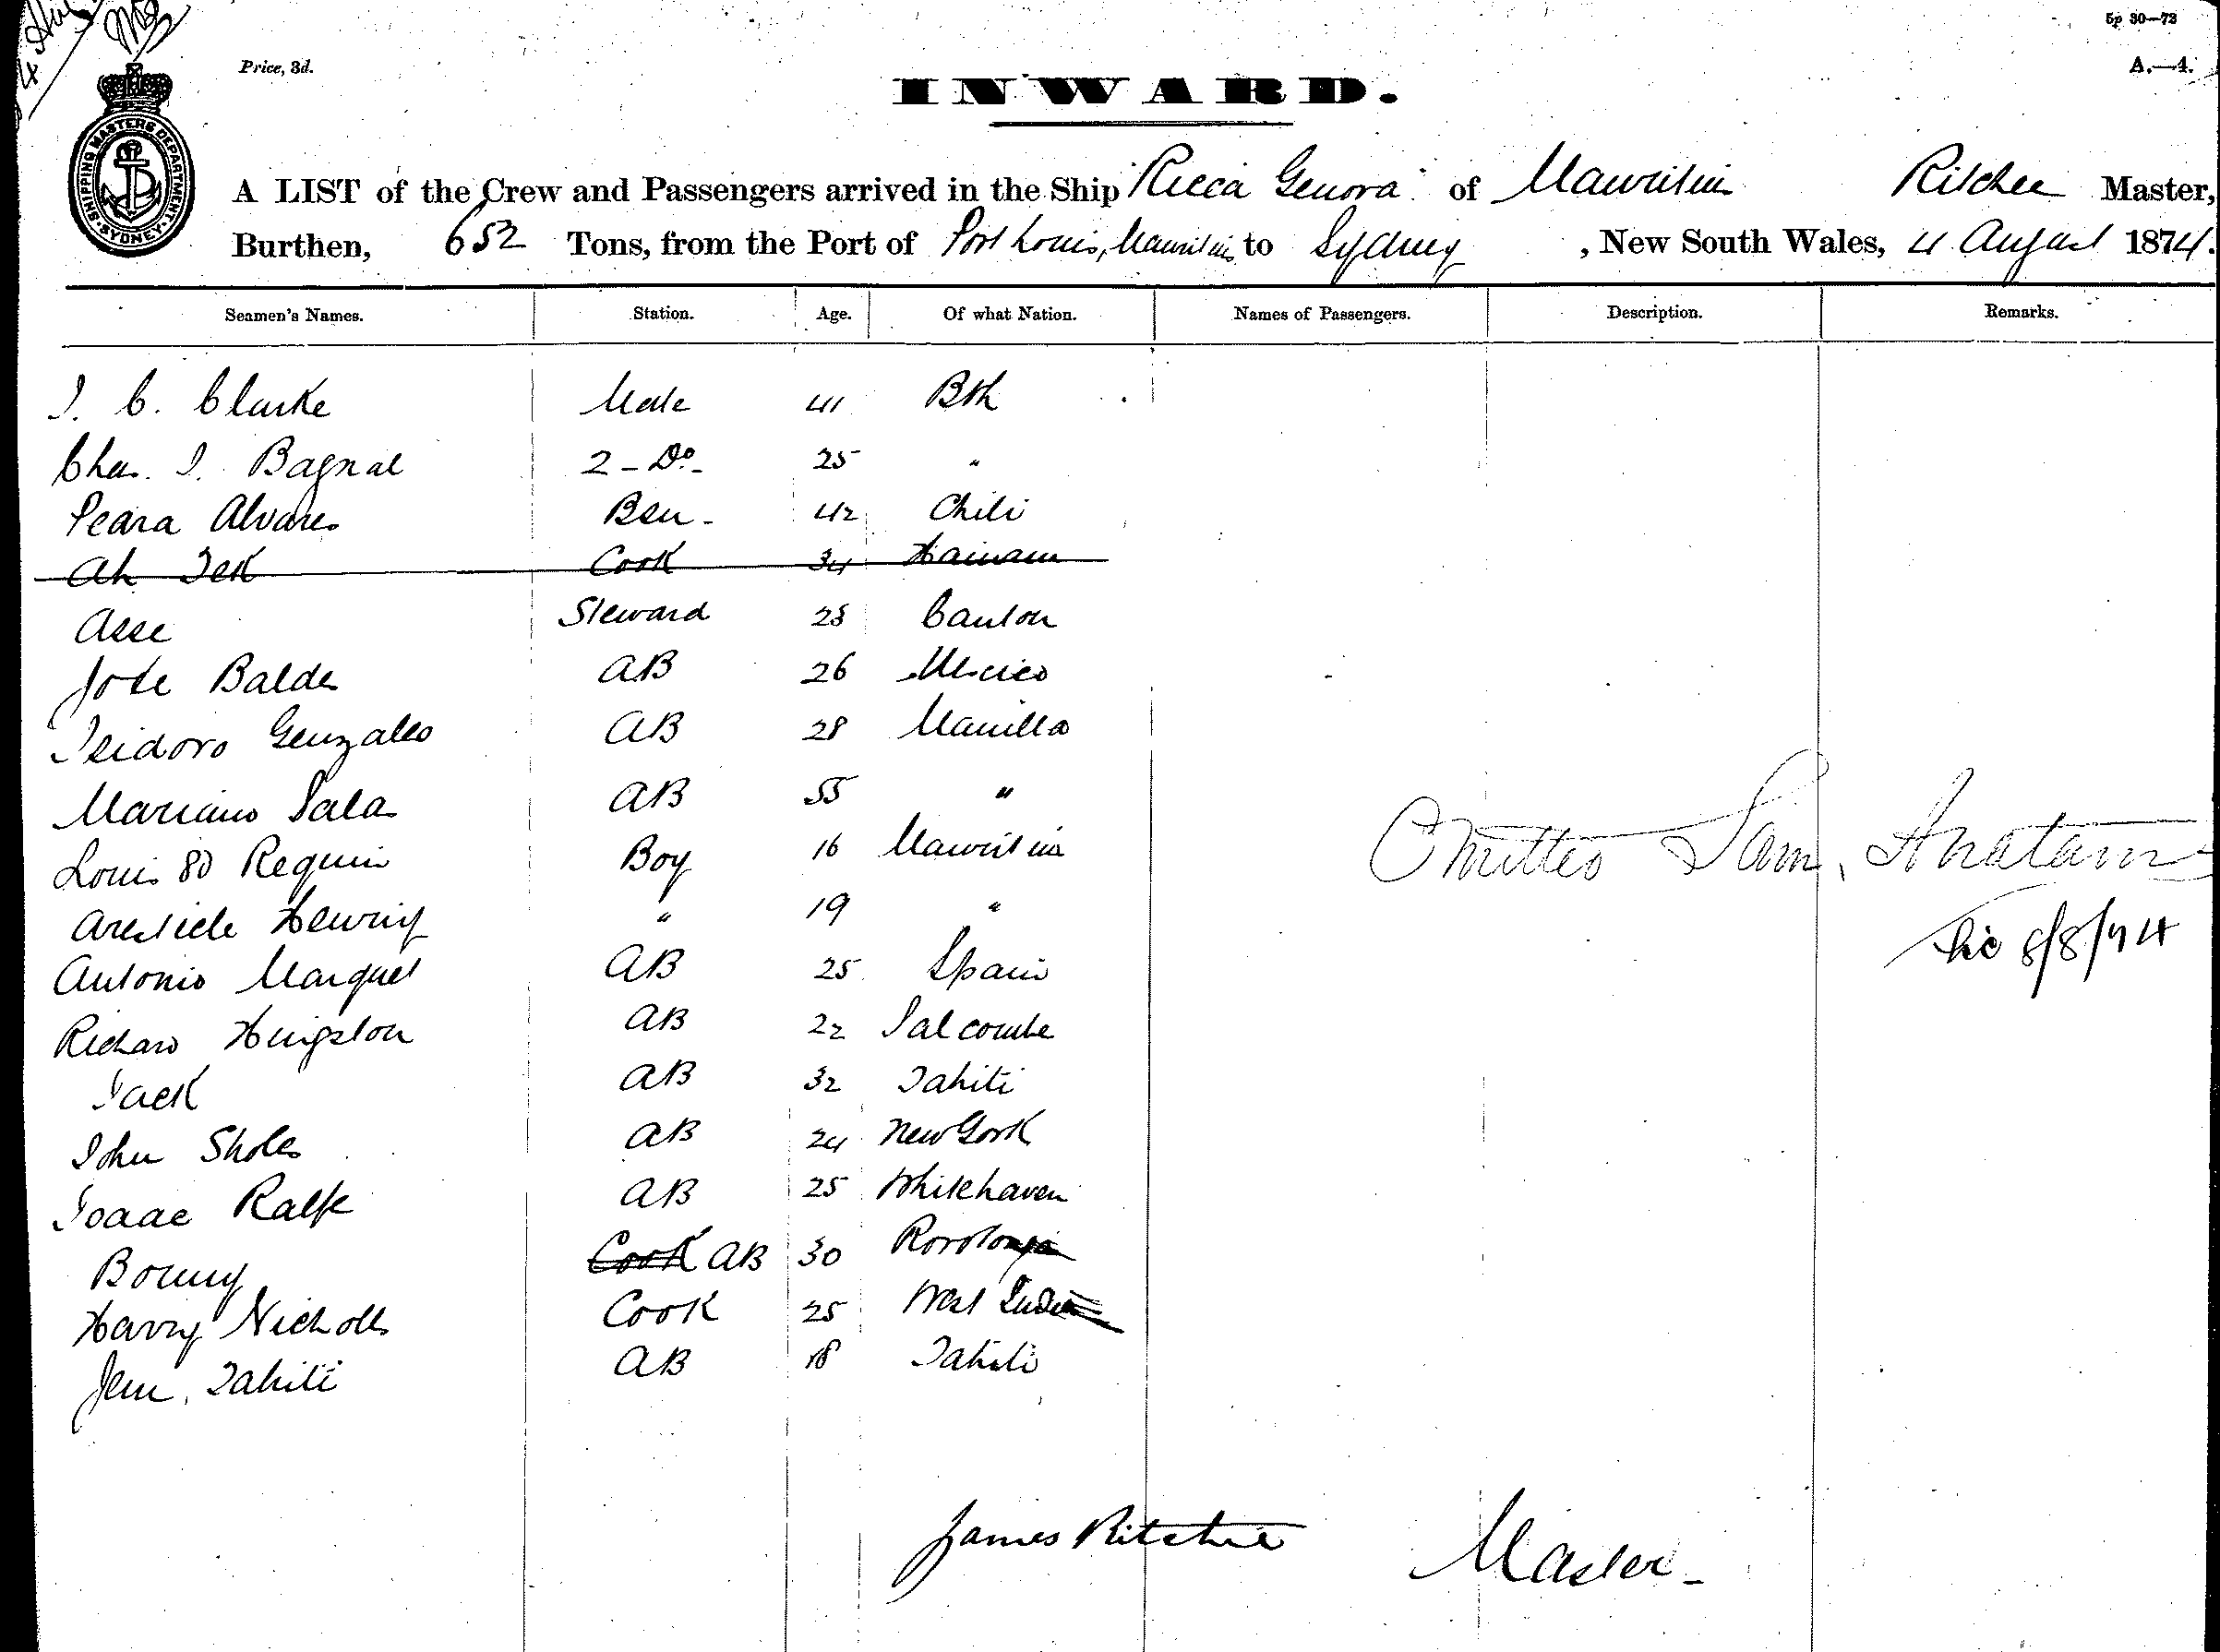 5p 30—73
Price, 3d.
A.—4.
INWARD.
SHIPPING MASTERS DEPARTMENT SYDNEY
A LIST of the Crew and Passengers arrived in the Ship "Ricca Genova" of Mauritius Ritchie Master,
Burthen, 652 Tons, from the Port of Port Louis, Mauritius to Sydney , New South Wales, 4 August 1874.
Seamen's Names. Station. Age. Of what Nation. Names of Passengers. Description. Remarks.
J. C. Clarke Mate 41 Bsh
Chas. J. Bagnal 2 - Do. - 25 "
Peara Alvares Bsn - 42 Chili
Ah Tek Cook 34 Hainam
Asse Steward 25 Canton
Jose Baldes AB 26 Mexico
Isidoro Gonzales AB 28 Manilla
Mariano Sala AB 55 "
Louis Requin Boy 16 Mauritius
" 19 "
Antonio Marques AB 25 Spain
Richard Hingston AB 22 Salcombe
Jack AB 32 Tahiti
John Sholes AB 24 New York
Isaac Ralfe AB 25 Whitehaven
Bonny Cook AB 30 Rorotonga
Harry Nicholls Cook 25 West Indies
Jem, Tahiti AB 18 Tahiti
Omitted Sam,
8/8/74
James Ritchie Master -